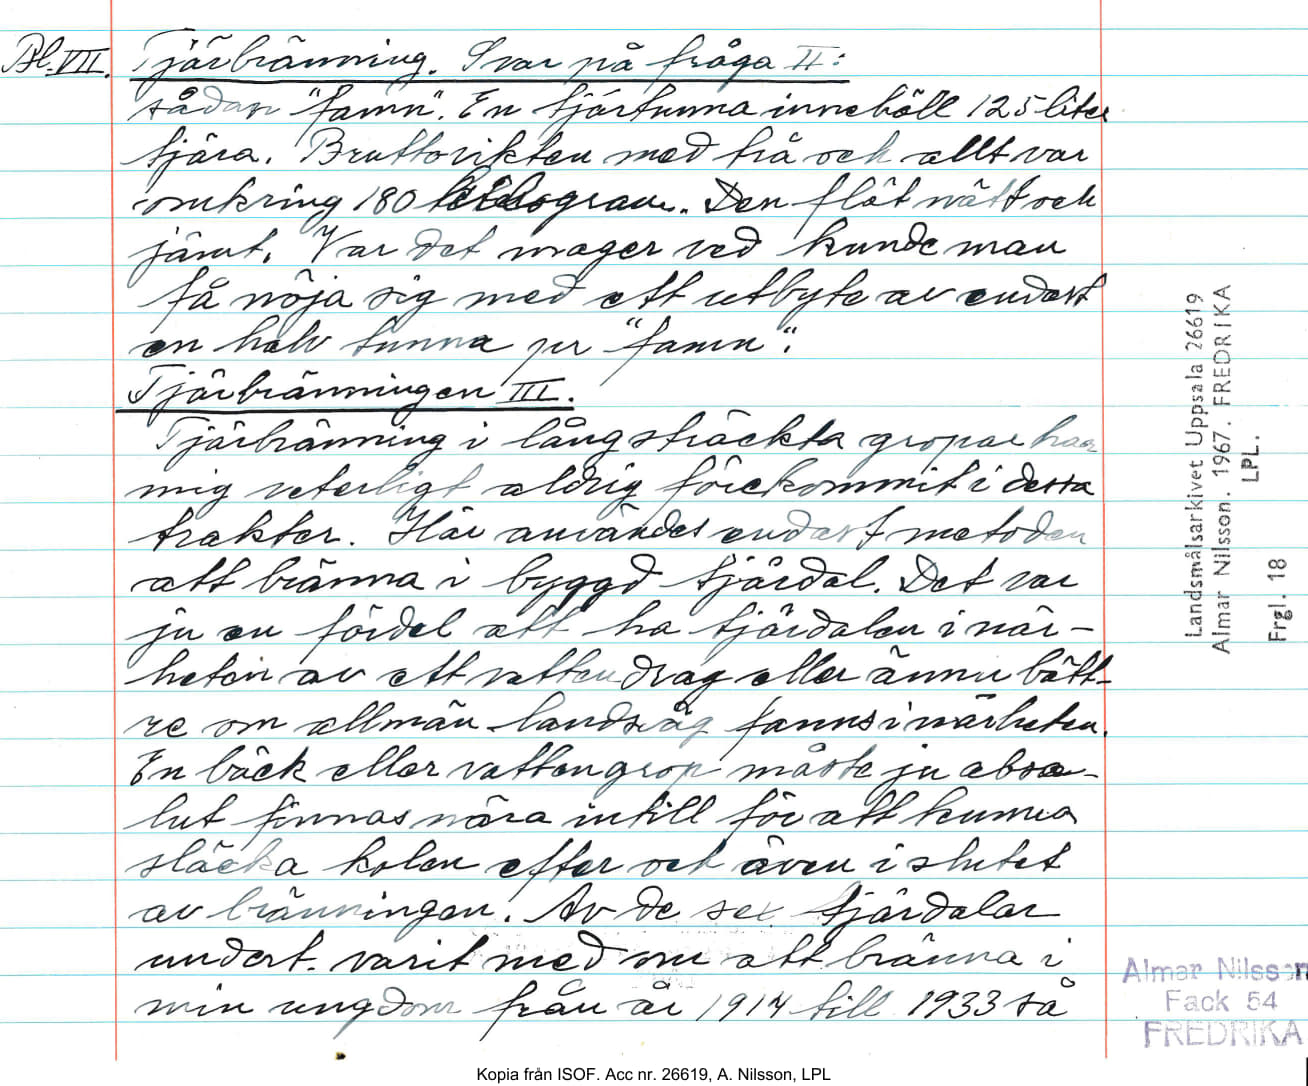 Bl. VII. Tjärbränning. Svar på fråga II:
sådan "famn". En tjärtunna innehöll 125 liter
tjära. Bruttovikten med trä och allt var
omkring 180 kilogram. Den flöt nätt och
jämt. Var det mager ved kunde man
få nöja sig med ett utbyte av endast
en halv tunna pr "famn".
Tjärbränningen III.
Tjärbränning i långsträckta gropar har
mig veterligt aldrig förekommit i dessa
trakter. Här användes endast metoden
att bränna i byggd tjärdal. Det var
ju en fördel att ha tjärdalen i när-
heten av ett vattendrag eller ännu bätt-
re om allmän landsväg fanns i närheten.
En bäck eller vattengrop måste ju abso-
lut finnas nära intill för att kunna
släcka kolen efter och även i slutet
av bränningen. Av de sex tjärdalar
undert. varit med om att bränna i
min ungdom från år 1914 till 1933 så
Landsmålsarkivet Uppsala 26619
Almar Nilsson. 1967. FREDRIKA
LPL.
Frgl. 18
Almar Nilsson
Fack 54
FREDRIKA
Kopia från ISOF. Acc nr. 26619, A. Nilsson, LPL